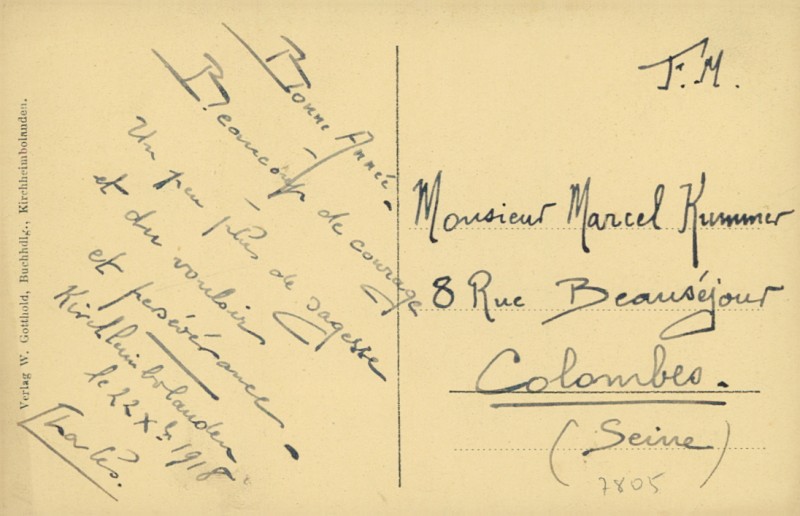 Bonne Année.
Beaucoup de courage
Un peu plus de sagesse
et du vouloir
et persévérance.
Kirchheimbolanden
le 22 Xbre 1918
Charles.
F. M.
Monsieur Marcel Kummer
8 Rue Beauséjour
Colombes.
(Seine)
7805
Verlag W. Gotthold, Buchhdlg., Kirchheimbolanden.